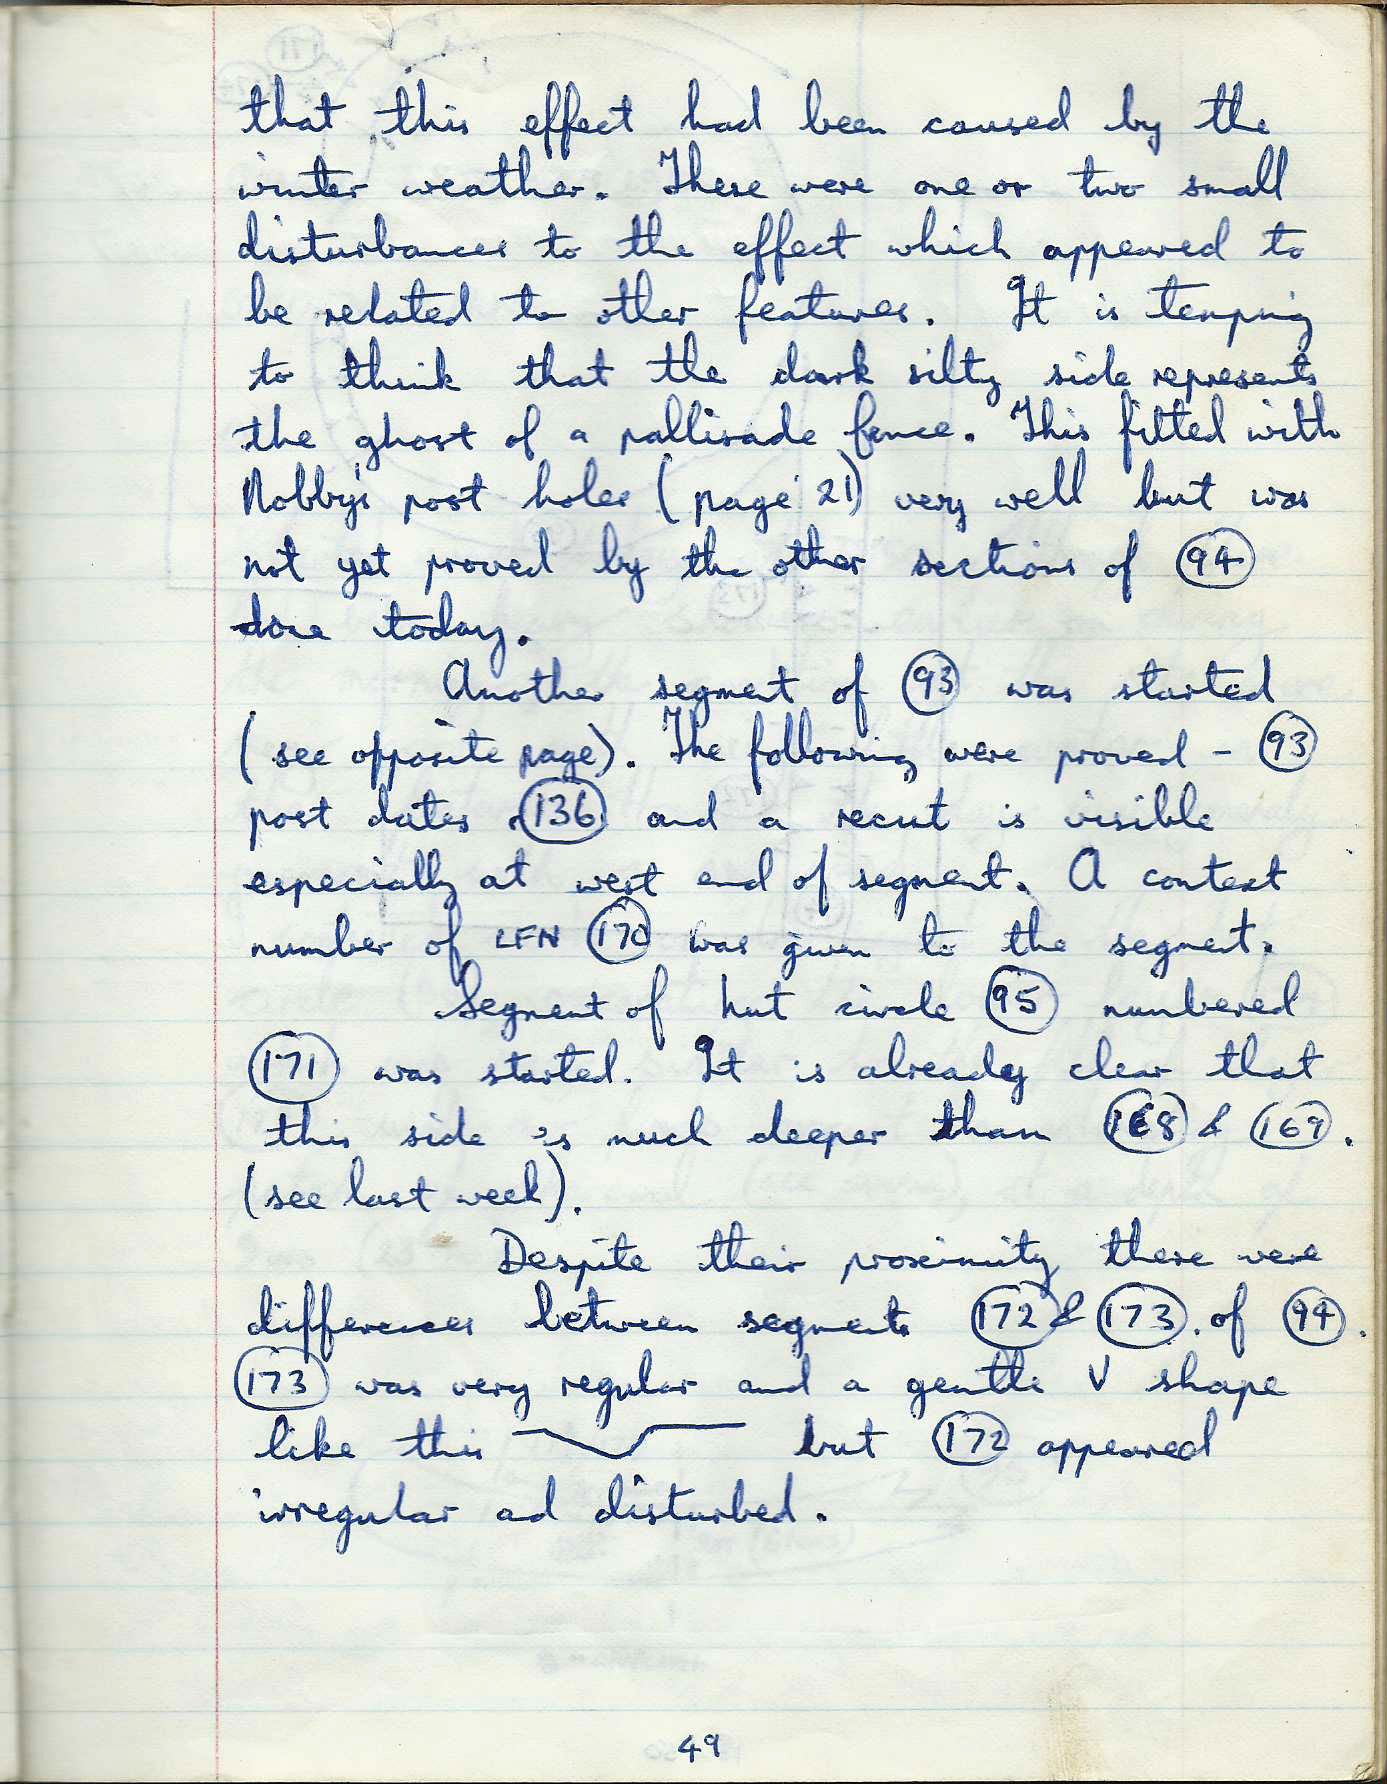 that this effect had been caused by the
winter weather. There were one or two small
disturbances to the effect which appeared to
be related to other features. It is temping
to think that the dark silty side represents
the ghost of a pallisade fence. This fitted with
Nobby's post holes (page 21) very well but was
not yet proved by the other sections of 94
done today.
Another segment of 93 was started
(see opposite page). The following were proved - 93
post dates 136 and a recut is visible
especially at west end of segment. A context
number of LFN 170 was given to the segment.
Segment of hut circle 95 numbered
171 was started. It is already clear that
this side is much deeper than 168 & 169.
(see last week).
Despite their proximity there were
differences between segments 172 & 173 of 94.
173 was very regular and a gentle V shape
like this but 172 appeared
irregular ad disturbed.
49